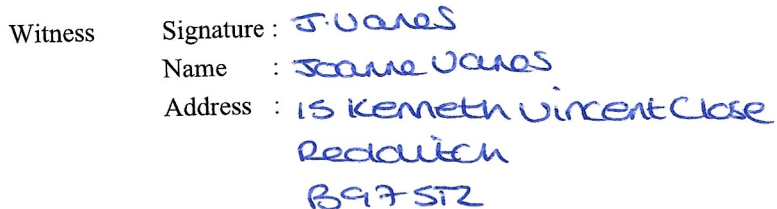 Witness Signature : J. Vanes
Name : Joanne Vanes
Address : 15 Kenneth Vincent Close
Redditch
B97 5TZ